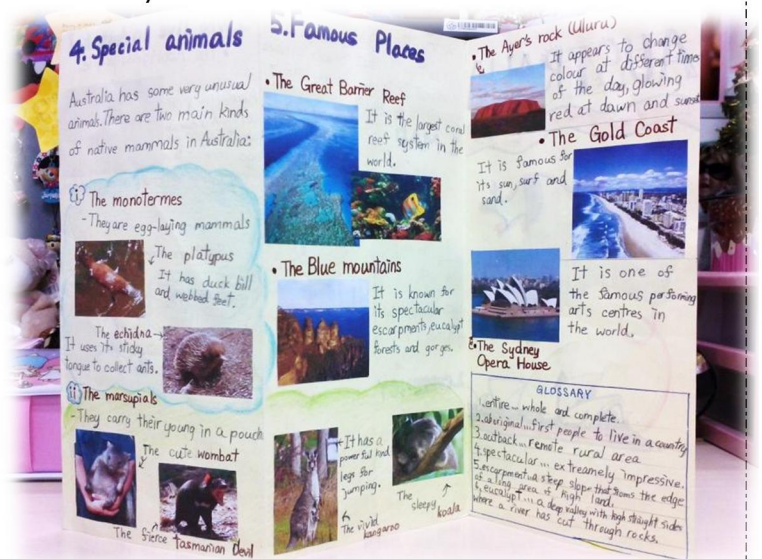 4. Special animals
Australia has some very unusual
animals. There are two main kinds
of native mammals in Australia:
i The monotermes
- They are egg-laying mammals
The platypus
It has duck bill
and webbed feet.
The echidna
It uses its sticky
tongue to collect ants.
ii The marsupials
- They carry their young in a pouch
The cute wombat
The fierce Tasmanian Devil
5. Famous Places
• The Great Barrier Reef
It is the largest coral
reef system in the
world.
• The Blue mountains
It is known for
its spectacular
escarpments, eucalypt
forests and gorges.
It has a
powerful hind
legs for
jumping.
The vivid
kangaroo
The
sleepy koala
• The Ayer's rock (Uluru)
It appears to change
colour at different time
of the day, glowing
red at dawn and sunset
• The Gold Coast
It is famous for
its sun, surf and
sand.
It is one of
the famous performing
arts centres in
the world.
• The Sydney
Opera House
GLOSSARY
1. entire... whole and complete.
2. aboriginal... first people to live in a country
3. outback... remote rural area
4. spectacular... extreamely impressive.
5. escarpment a steep slope that forms the edge
of a long area of high land.
6. eucalypt... a deep valley with high straight sides
where a river has cut through rocks.